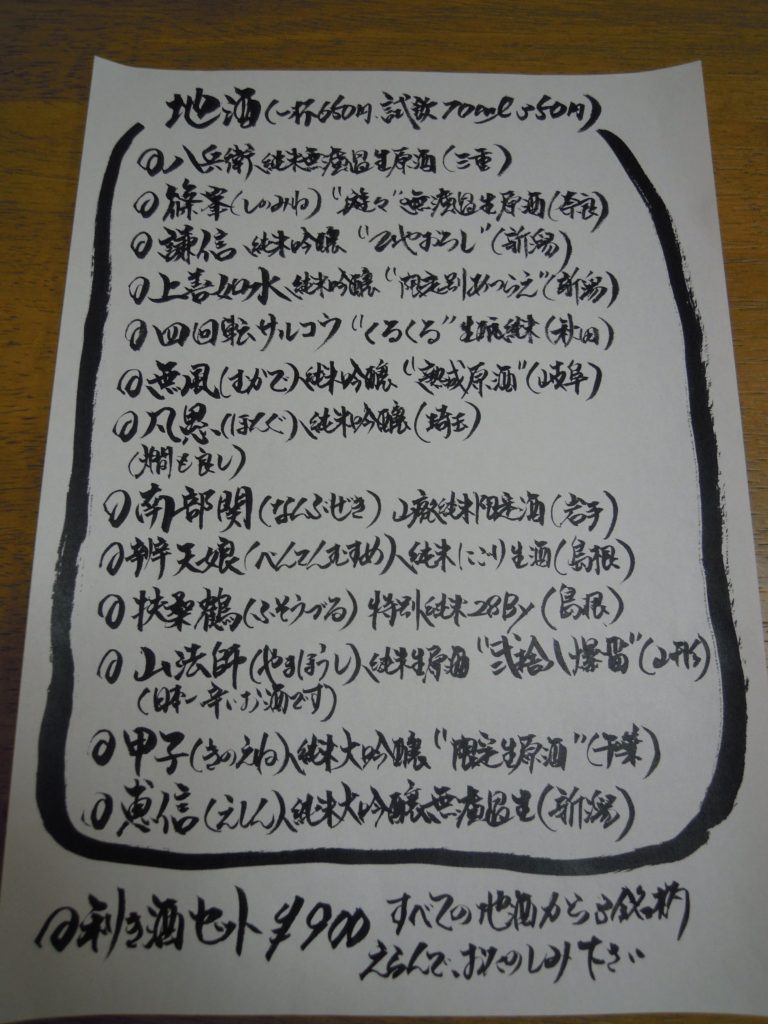 地酒(一杯650円 試飲70ml 350円)
八兵衛 純米無濾過生原酒(三重)
篠峯(しのみね)"遊々"無濾過生原酒(奈良)
謙信 純米吟醸 "ひやおろし"(新潟)
上善如水 純米吟醸 "限定別あつらえ"(新潟)
四回転サルコウ "くるくる" 生酛純米(秋田)
無風(むかで)純米吟醸 "熟成原酒"(岐阜)
凡愚(ぼんぐ)純米吟醸(埼玉)
(燗も良し)
南部関(なんぶぜき) 山廃純米限定酒(岩手)
辨天娘(べんてんむすめ)純米にごり生酒(島根)
扶桑鶴(ふそうづる) 特別純米 28By(島根)
山法師(やまほうし)純米生原酒 "弐拾八爆雷"(山形)
(日本一辛いお酒です)
甲子(きのえね)純米大吟醸 "限定生原酒"(千葉)
恵信(えしん)純米大吟醸無濾過生(新潟)
利き酒セット ¥900 すべての地酒から3銘柄
えらんで、おたのしみ下さい